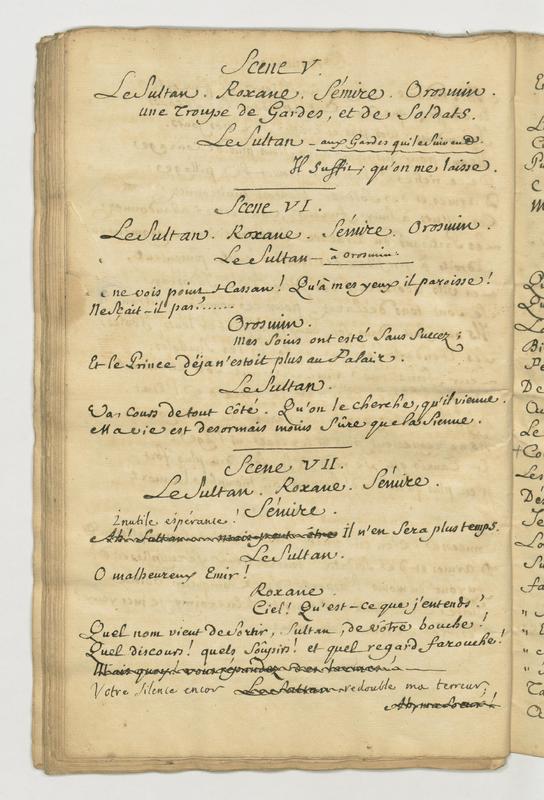 Scene V.
Le Sultan. Roxane. Sémire. Orosmin.
une Troupe de Gardes, et de Soldats.
Le Sultan - aux Gardes qui le suivent
Il suffit; qu'on me laisse.
Scene VI.
Le Sultan. Roxane. Sémire. Orosmin.
Le Sultan - à Orosmin.
ne vois point Hassan! Qu'à mes yeux il paroisse!
Ne sçait-il pas?......
Orosmin.
Mes soins ont esté sans succez;
Et le Prince déja n'estoit plus au Palais.
Le Sultan.
Va, cours de tout côté. Qu'on le cherche, qu'il vienne.
Ma vie est desormais moins sûre que la sienne.
Scene VII.
Le Sultan. Roxane. Sémire.
Sémire.
Inutile espérance!
Ah! Sultan mais peut être Il n'en sera plus temps.
Le Sultan.
O malheureux Emir!
Roxane.
Ciel! Qu'est-ce que j'entends?
Quel nom vient de sortir, Sultan, de votre bouche!
Quel discours! quels soûpirs! et quel regard farouche!
Mais quoy! vous répandez des larmes!
Votre silence encor Le Sultan redouble ma terreur;
Ah, ma Soeur!